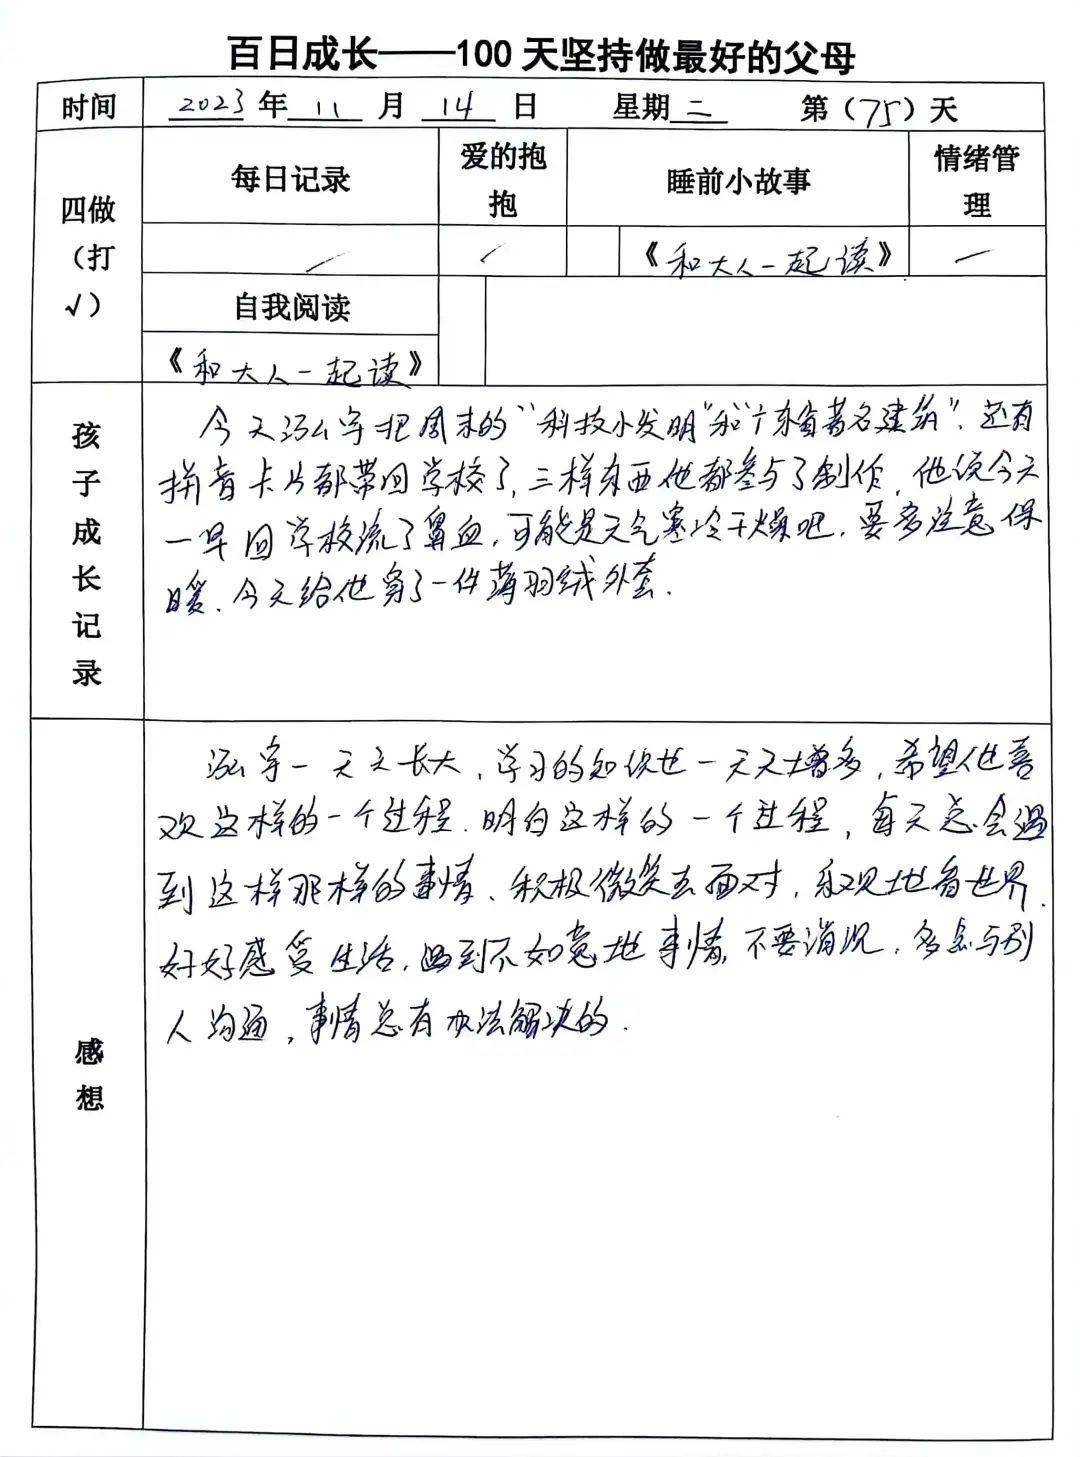 百日成长——100 天坚持做最好的父母
时间 2023 年 11 月 14 日 星期二 第（75）天
四做（打√） 每日记录 爱的抱抱 睡前小故事 情绪管理
《和大人一起读》
自我阅读
《和大人一起读》
孩子成长记录
今天泓宇把周末的“科技小发明”和“广东省著名建筑”、还有
拼音卡片都带回学校了，三样东西他都参与了制作，他说今天
一早回学校流了鼻血，可能是天气寒冷干燥吧，要多注意保
暖．今天给他穿了一件薄羽绒外套．
感想
泓宇一天天长大，学习的知识也一天天增多，希望他喜
欢这样的一个过程．明白这样的一个过程，每天总会遇
到这样那样的事情、积极微笑去面对，乐观地看世界．
好好感受生活，遇到不如意地事情，不要消沉，多点与别
人沟通，事情总有办法解决的．